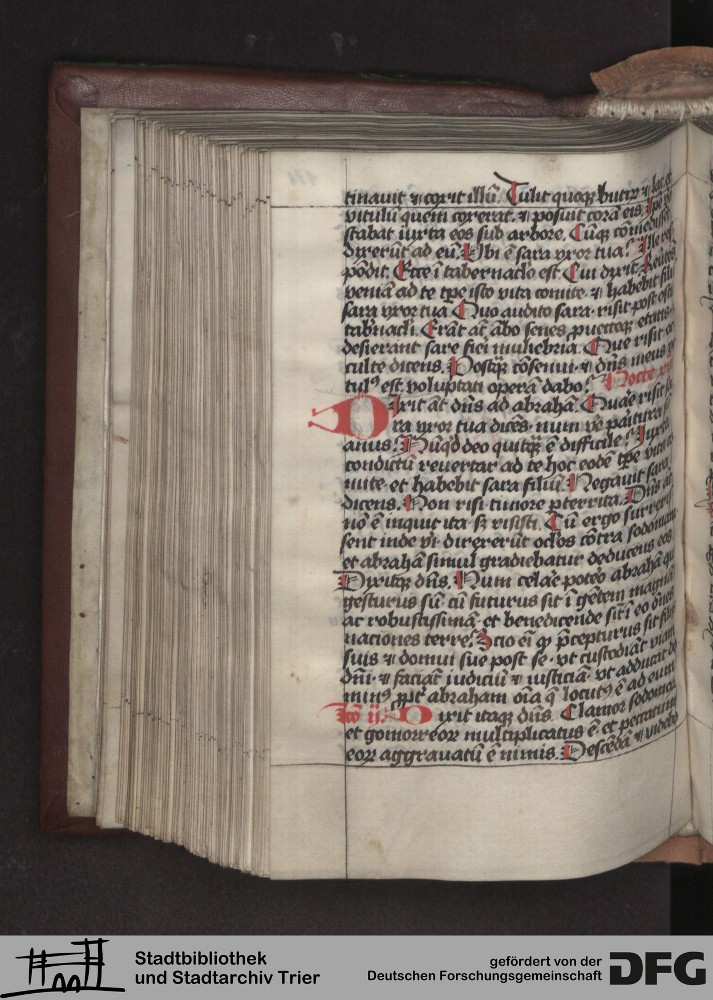 tinauit ⁊ coxit illū. Tulit quoqꝫ butirꝫ ⁊ lac et
vitulū quem coxerat. ⁊ posuit corā eis. Ipe vo
stabat iuxta eos sub arbore. Cūqꝫ comedisse
dixerūt ad eū. Vbi ē sara vxor tua? Ille res
pōdit. Ecce ī tabernac̄lo est. Cui dixit. Reūtēs
veniā ad te tp̄e isto vita comite. ⁊ habebit filiū
sara vxor tua. Quo audito sara. risit post ostiū
tab̄nacli. Erāt aūt ābo senes, puecteqꝫ etatis.
desierant sare fieri muliebria. Que risit oc
culte dicens. Postqꝫ cōsenui. ⁊ dn̄s meus ve
tulꝰ est. voluptati operā dabo?
Dixit āt dn̄s ad abrahā. Quare risit sa
ra vxor tua dicēs. num ve paritura sū
anus? Nūqd deo quitqꝫ ē difficile? Iuxta
condictū reuertar ad te hoc eodē tp̄e vita co
mite. et habebit sara filiū. Negauit sara
dicens. Non risi. timore pterrita. Dn̄s āt
nō ē inquit ita. sꝫ risisti. Cū ergo surrexis
sent inde viri. direxerūt oclos cōtra sodomam.
et abrahā simul gradiebatur deducens eos.
Dixitqꝫ dn̄s. Num celare poteo abrahā que
gesturus sū. cū futurus sit ī gētem magnā
ac robustissimā. et benedicende sīt ī eo ōnes
naciones terre? Scio ei ꝙ p̄cepturus sit filiis
suis ⁊ domui sue post se. vt custodiāt viam
dn̄i. ⁊ faciāt iudiciū ⁊ iusticiā. vt adducat do
minꝰ ppt abraham oīa q̄ locutꝰ ē ad eum.
Lco ij. Dixit itaqꝫ dn̄s. Clamor sodomoꝝ
et gomorreoꝝ multiplicatus ē. et peccatum
eoꝝ aggrauatū ē nimis. Descēdā ⁊ videbo
Stadtbibliothek
und Stadtarchiv Trier
gefördert von der
Deutschen Forschungsgemeinschaft
DFG